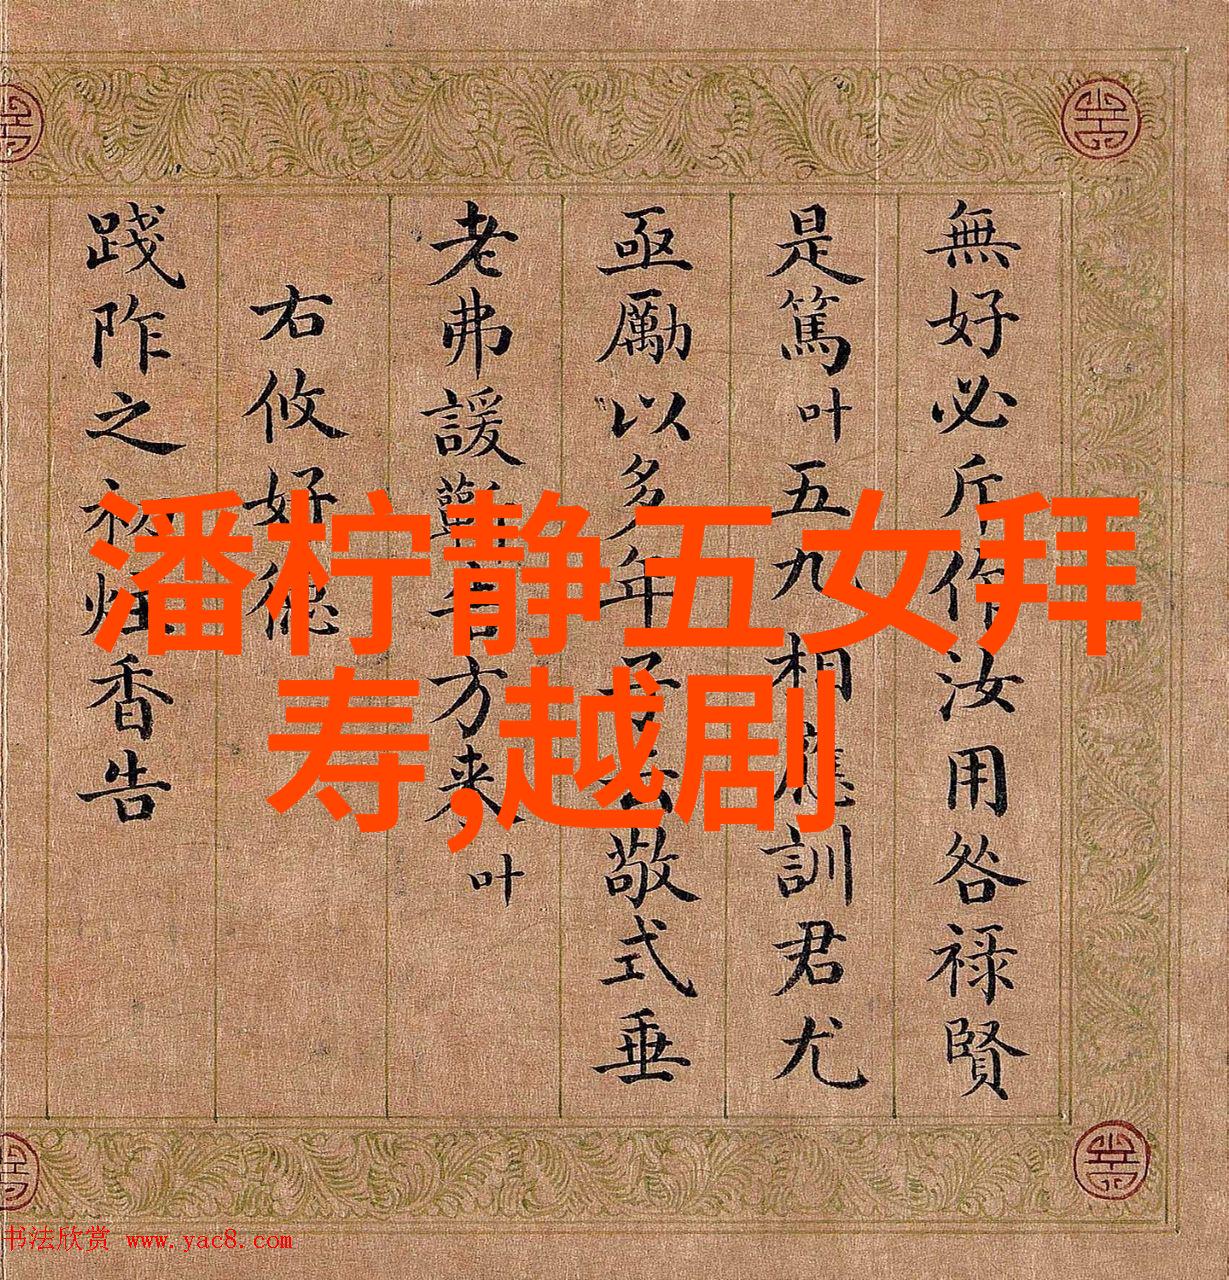 無好必斤作汝用咎祿賢
是篤叶五九相應訓君尤
亟勵以多年子云敬式垂
老弗諼勸告方来叶
右攸好德
踐阼之初炷香告
潘柠静五女拜
寿,越剧
书法欣赏 www.yac8.com